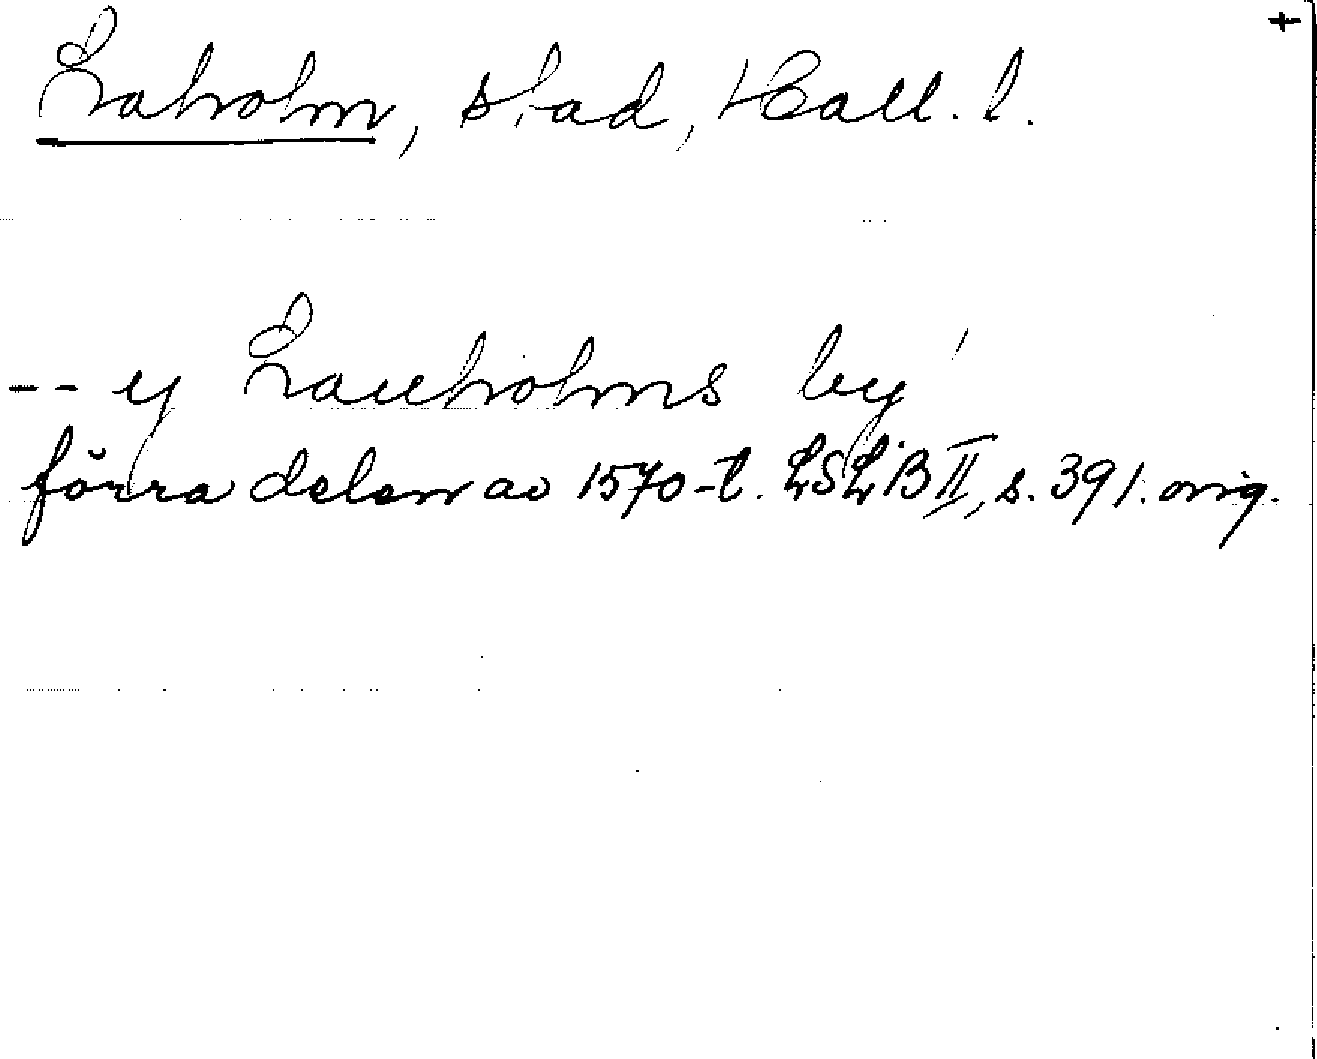 +
Laholm, stad, Hall. l.
-- y Laueholms by'
förra delen av 1570-t. LSLB II, s. 391. orig.